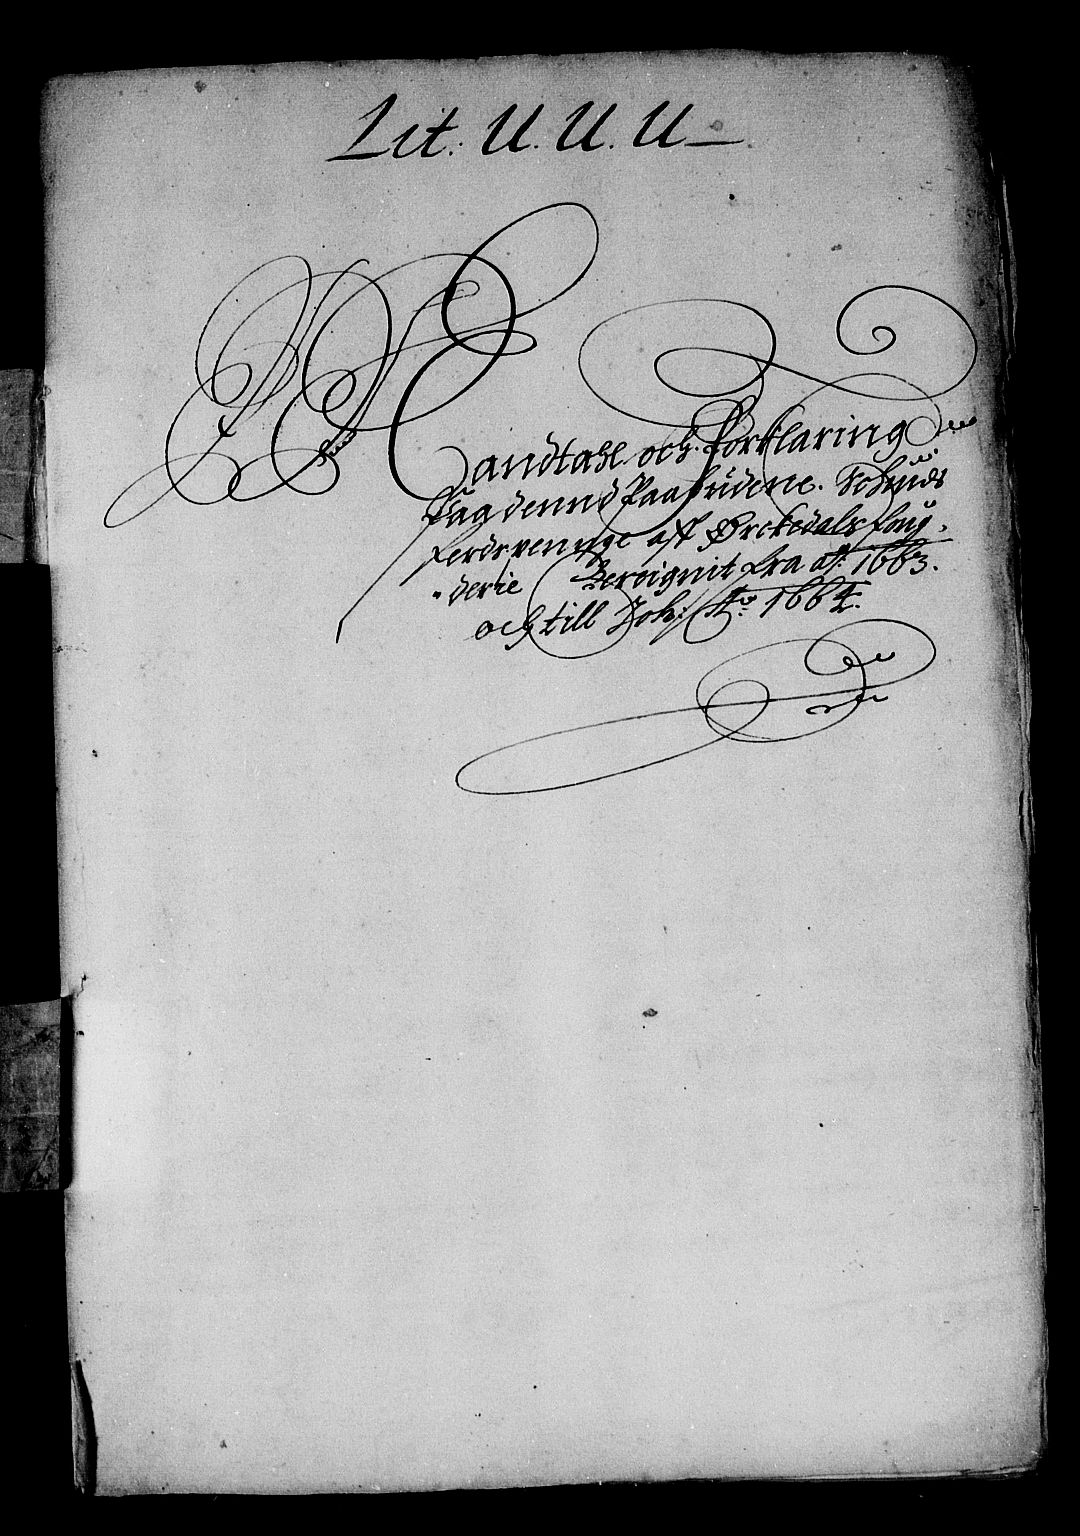 Lit. U. U. U
Mandtahl och Forklaring
Paa dennd Paabudene. Schuds
ferds penge aff Ørckedals fong,
derie Beroignit fra ao: 1663.
och till Joh: Ao: 1664.